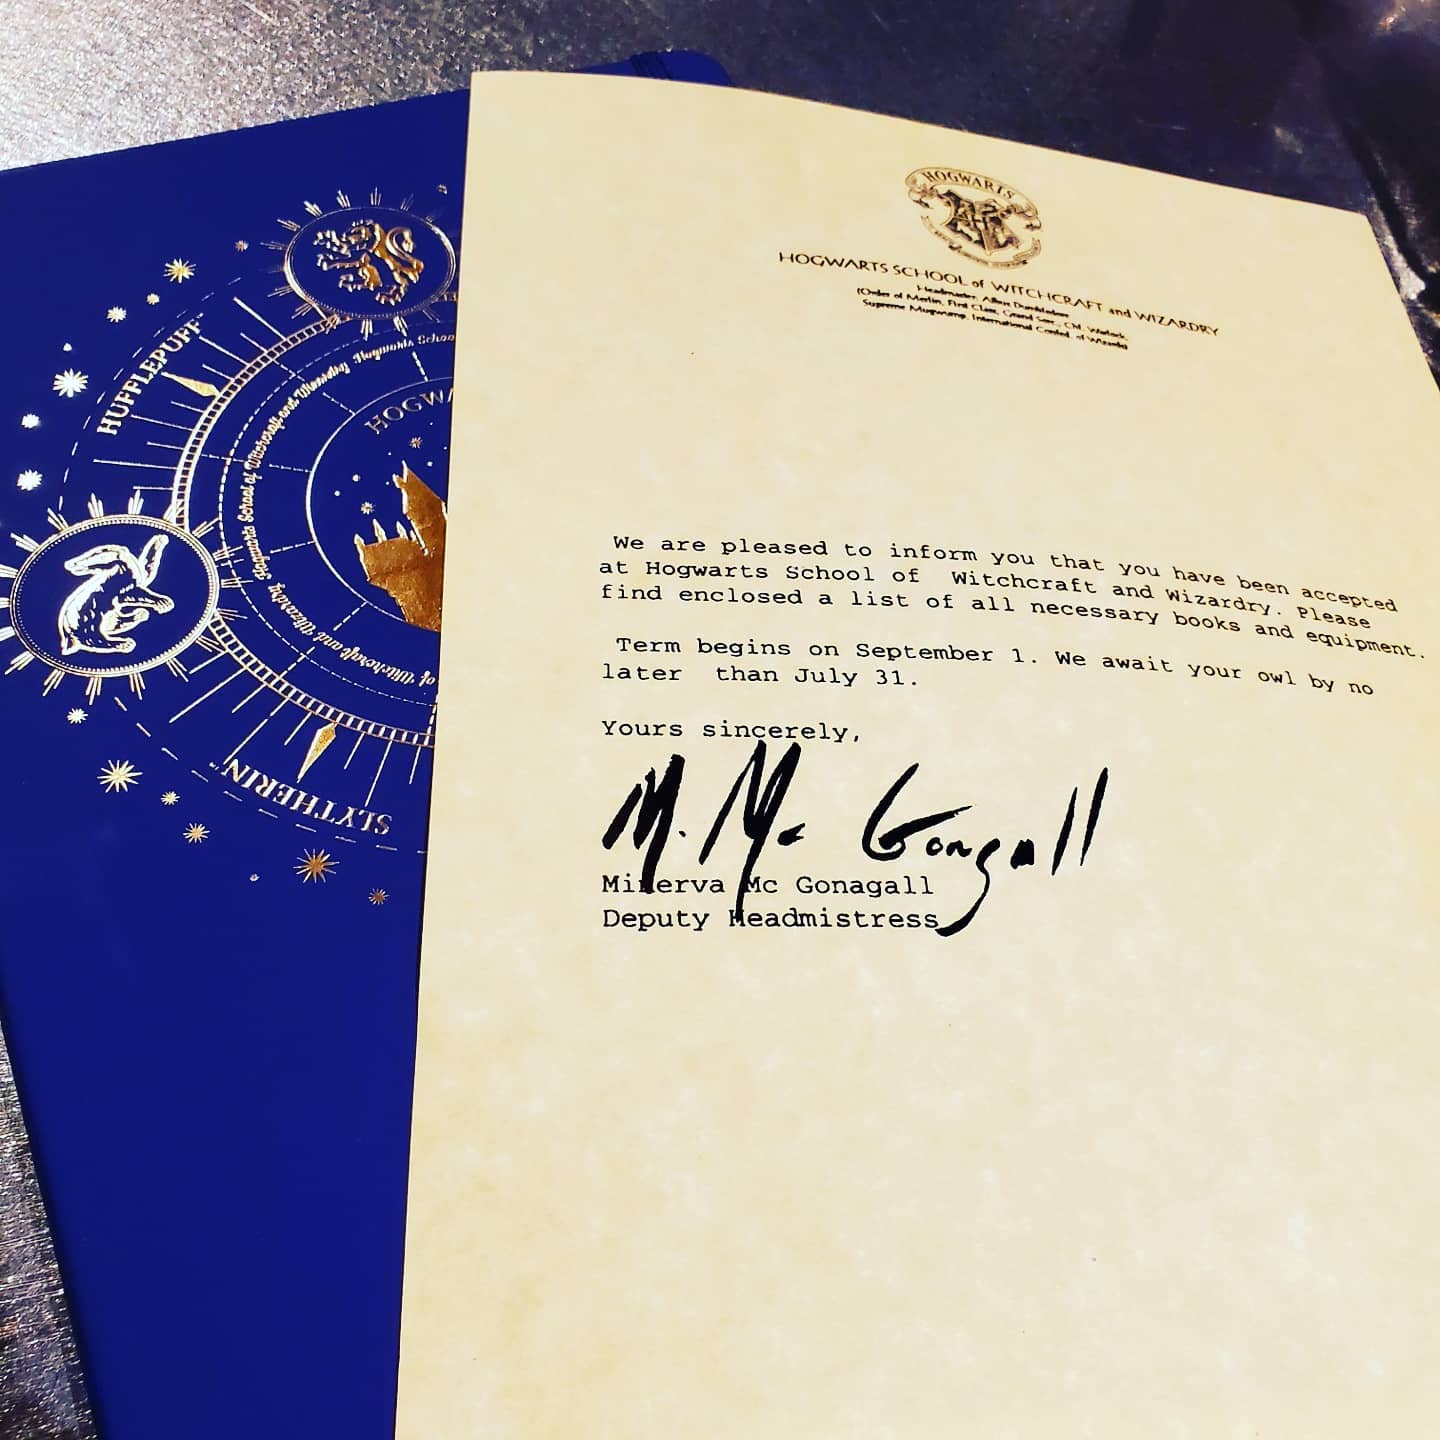 HOGWARTS
HOGWARTS SCHOOL of WITCHCRAFT and WIZARDRY
Headmaster: Albus Dumbledore
(Order of Merlin, First Class, Grand Sorc., Ch. Warlock,
Supreme Mugwump, International Confed. of Wizards)
We are pleased to inform you that you have been accepted
at Hogwarts School of Witchcraft and Wizardry. Please
find enclosed a list of all necessary books and equipment.
Term begins on September 1. We await your owl by no
later than July 31.
Yours sincerely,
M. Mc Gonagall
Minerva Mc Gonagall
Deputy Headmistress
HUFFLEPUFF
Hogwarts School of Witchcraft and Wizardry Hogwarts School
HOGW
of Witchcraft and Wizardry
SLYTHERIN™